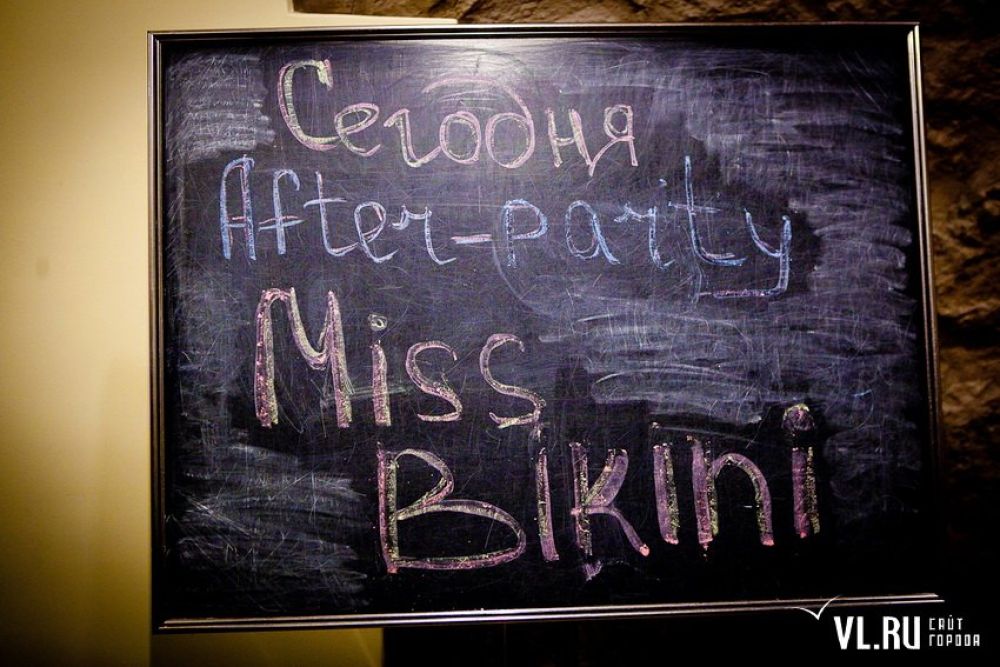 Сегодня
After-party
Miss
Bikini
VL.RU САЙТ
ГОРОДА